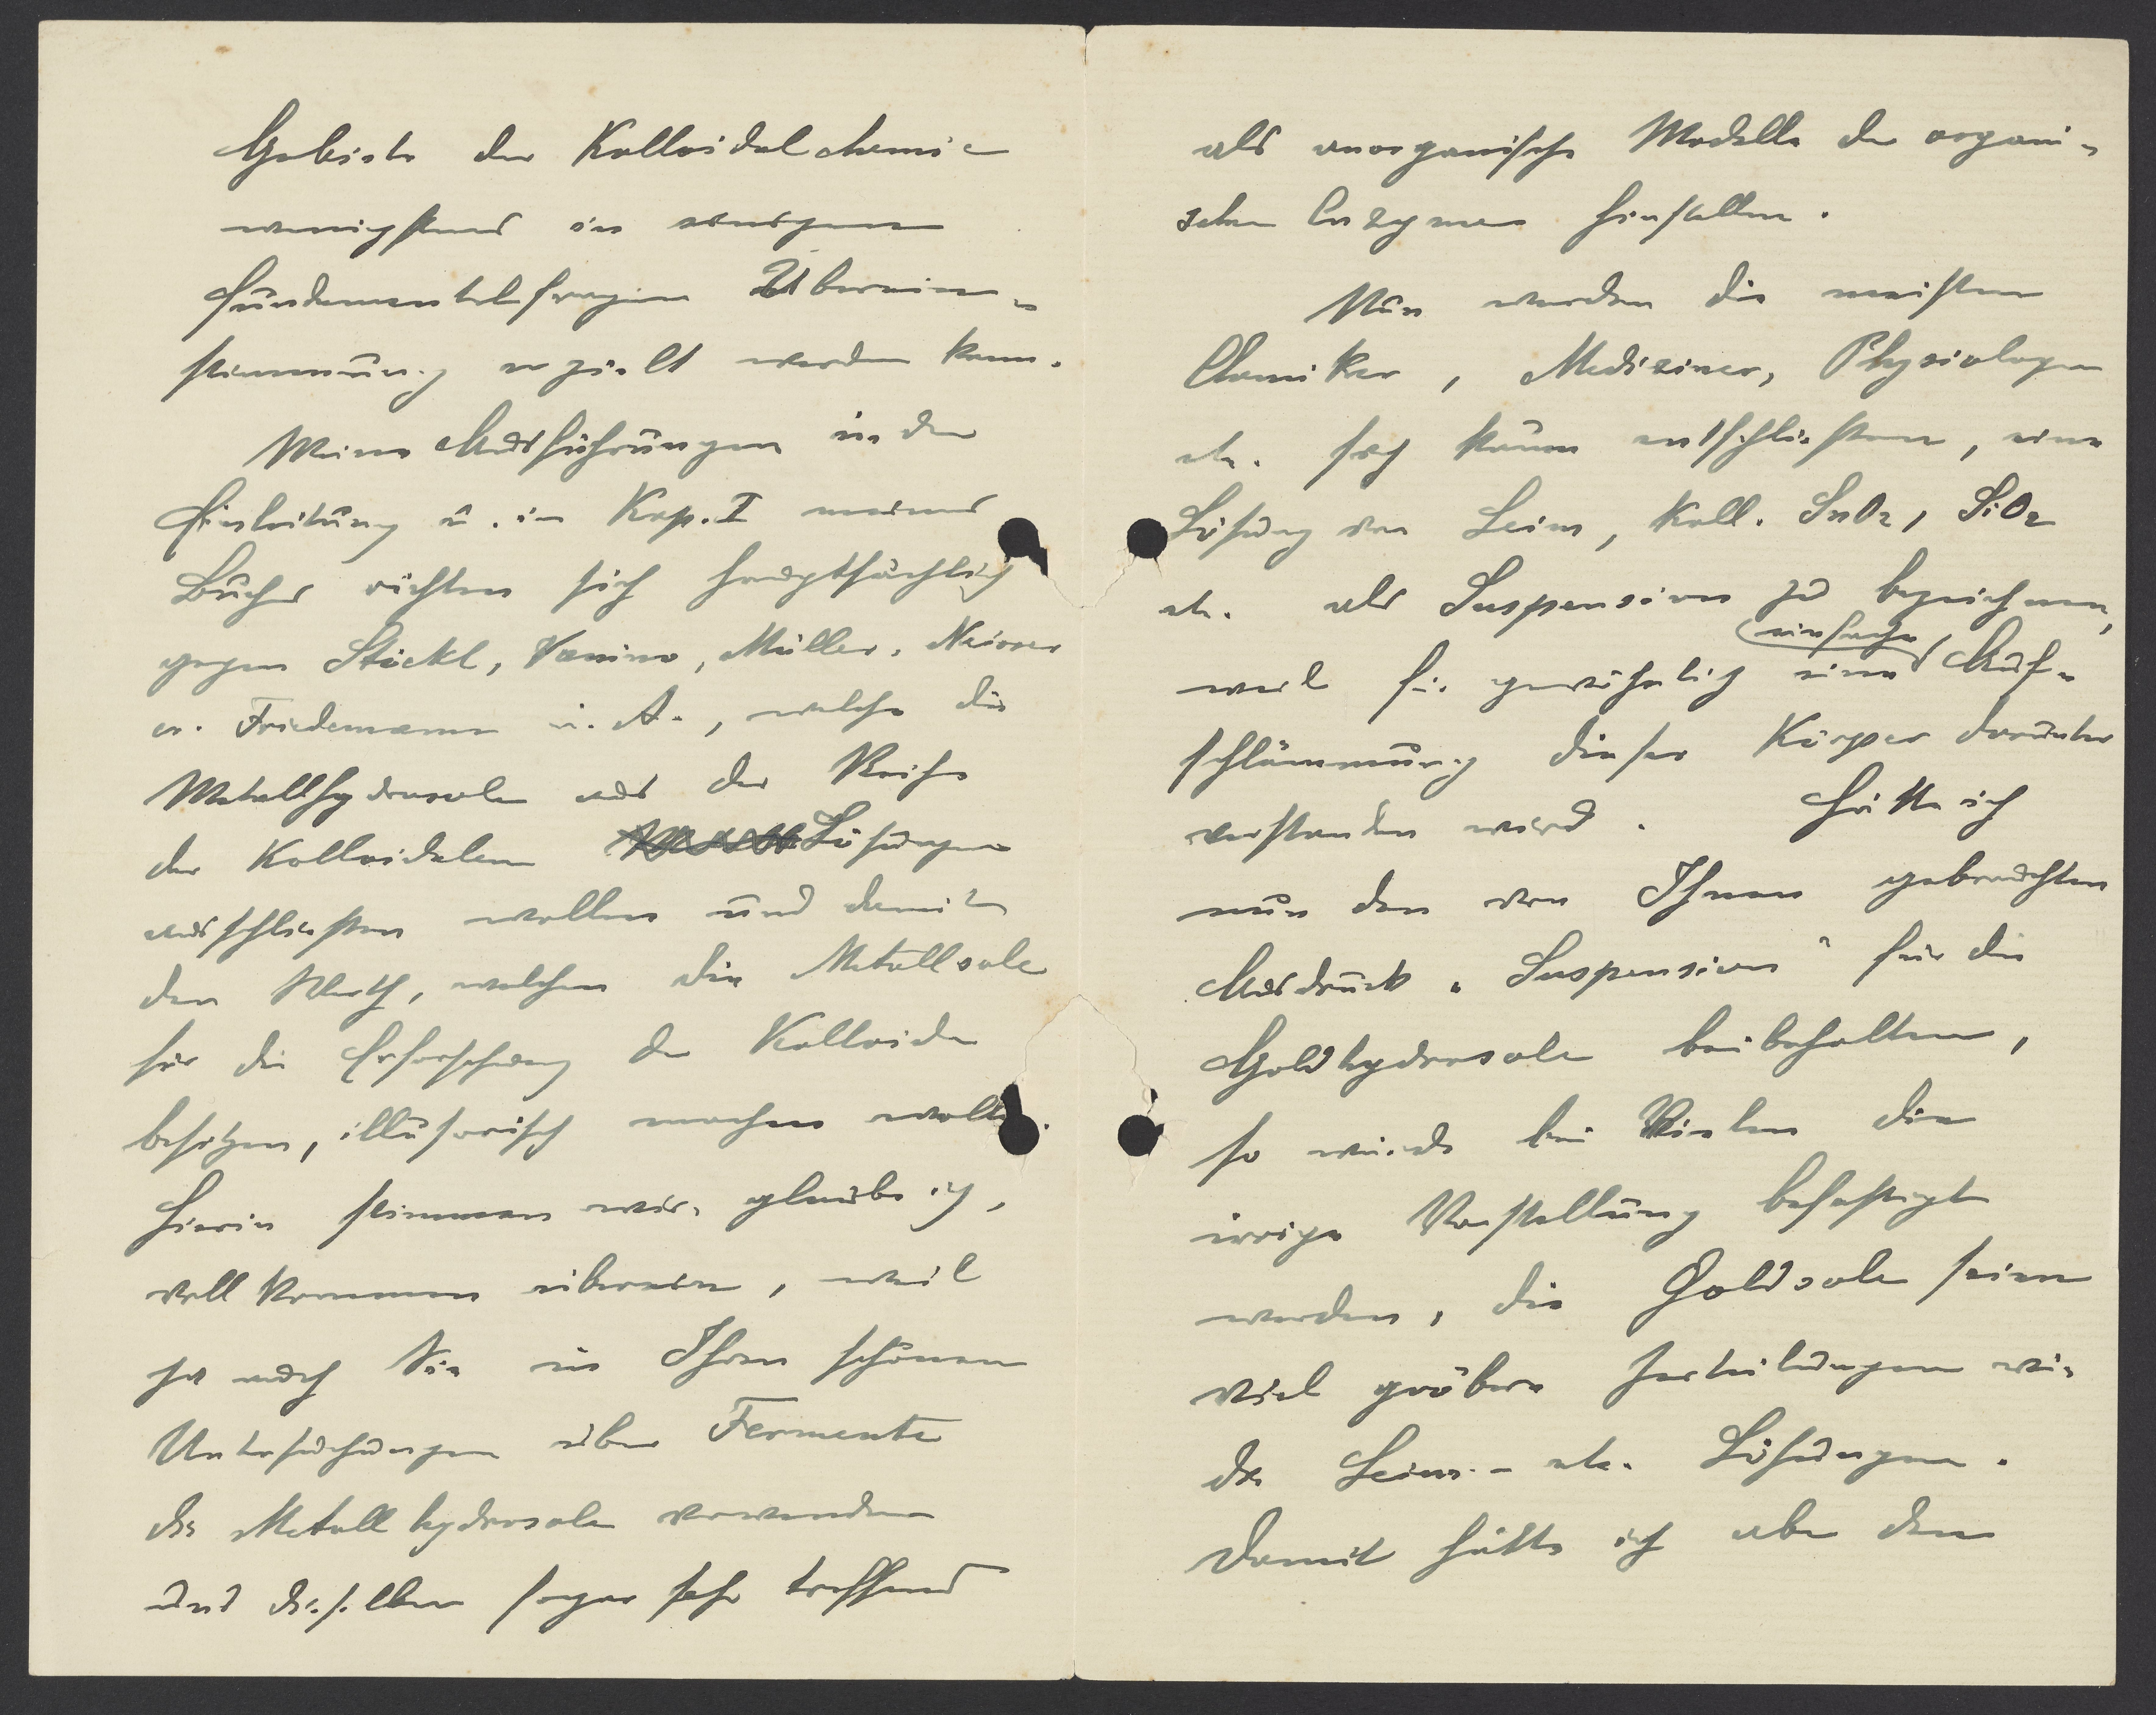 Gebiete der Kolloidalchemie
wenigstens in einigen
Fundamentalfragen Überein-
stimmung erzielt werden kann.
Meine Ausführungen in der
Einleitung u. im Kap. I meines
Buches richten sich hauptsächlich
gegen Stöckl, Vanino, Müller, Neisser
u. Friedemann u. A., welche die
Metallhydrosole aus der Reihe
der Kolloidalen Lösungen
ausschliessen wollen und damit
den Werth, welchen die Metallsole
für die Erforschung der Kolloide
besitzen, illusorisch machen wollen.
Hierin stimmen wir, glaube ich,
vollkommen überein, weil
ja auch Sie in Ihren schönen
Untersuchungen über Fermente
die Metallhydrosole verwenden
und dieselben sogar sehr treffend
als anorganische Modelle der organi-
schen Enzyme hinstellen.
Nun werden die meisten
Chemiker, Mediziner, Physiologen
etc. sich kaum entschliessen, eine
Lösung von Leim, Koll. SnO2, SiO2
etc. als Suspension zu bezeichnen,
weil für gewöhnlich eine einfache Auf-
schlämmung dieser Körper darunter
verstanden wird. Hätte ich
nun den von Ihnen gebrauchten
Ausdruck „Suspension" für die
Goldhydrosole beibehalten,
so würde bei Vielen die
irrige Vorstellung befestigt
werden, die Goldsole seien
viel gröbere Zerteilungen wie
die Leim- etc. Lösungen.
Damit hätte ich aber den